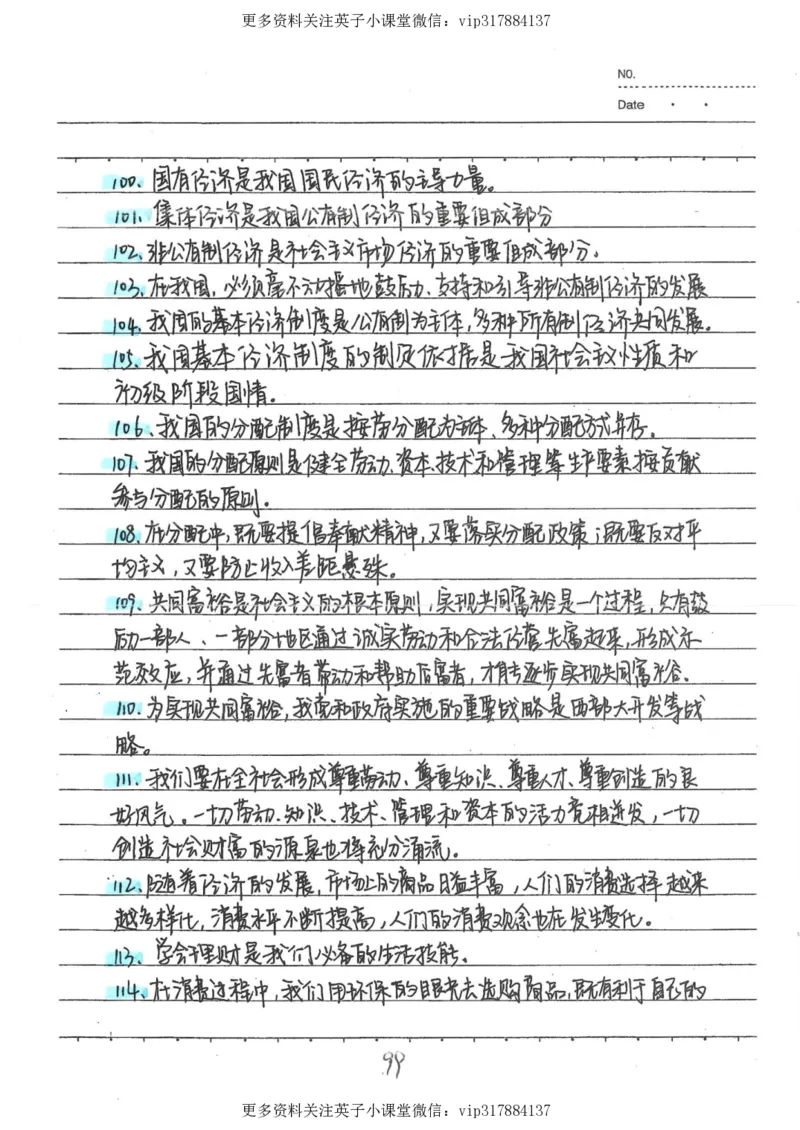 更多资料关注英子小课堂微信：vip317884137
NO.
Date
100、国有经济是我国国民经济的主导力量。
101、集体经济是我国公有制经济的重要组成部分
102、非公有制经济是社会主义市场经济的重要组成部分。
103、在我国，必须毫不动摇地鼓励、支持和引导非公有制经济的发展
104、我国的基本经济制度是公有制为主体，多种所有制经济共同发展。
105、我国基本经济制度的制定依据是我国社会主义性质和
初级阶段国情。
106、我国的分配制度是按劳分配为主体、多种分配方式并存。
107、我国的分配原则是健全劳动、资本、技术和管理等生产要素按贡献
参与分配的原则。
108、在分配中，既要提倡奉献精神，又要落实分配政策；既要反对平
均主义，又要防止收入差距悬殊。
109、共同富裕是社会主义的根本原则，实现共同富裕是一个过程，只有鼓
励一部人、一部分地区通过诚实劳动和合法经营先富起来，形成示
范效应，并通过先富者带动和帮助后富者，才能逐步实现共同富裕。
110、为实现共同富裕，我党和政府实施的重要战略是西部大开发等战
略。
111、我们要在全社会形成尊重劳动、尊重知识、尊重人才、尊重创造的良
好风气。一切劳动、知识、技术、管理和资本的活力竞相迸发，一切
创造社会财富的源泉也将充分涌流。
112、随着经济的发展，市场上的商品日益丰富，人们的消费选择越来
越多样化，消费水平不断提高，人们的消费观念也在发生变化。
113、学会理财是我们必备的生活技能。
114、在消费过程中，我们用环保的眼光去选购商品，既有利于自己的
99
更多资料关注英子小课堂微信：vip317884137